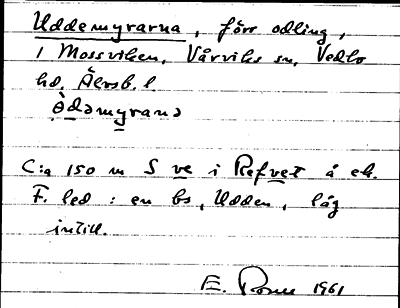 Uddemyrarna, förr odling,
i Mossviken, Vårviks sn, Vedbo
hd, Älvsb. l.
C:a 150 m S ve i Refvet å ek.
F. led : en bs, Udden, låg
intill.
E. 1961